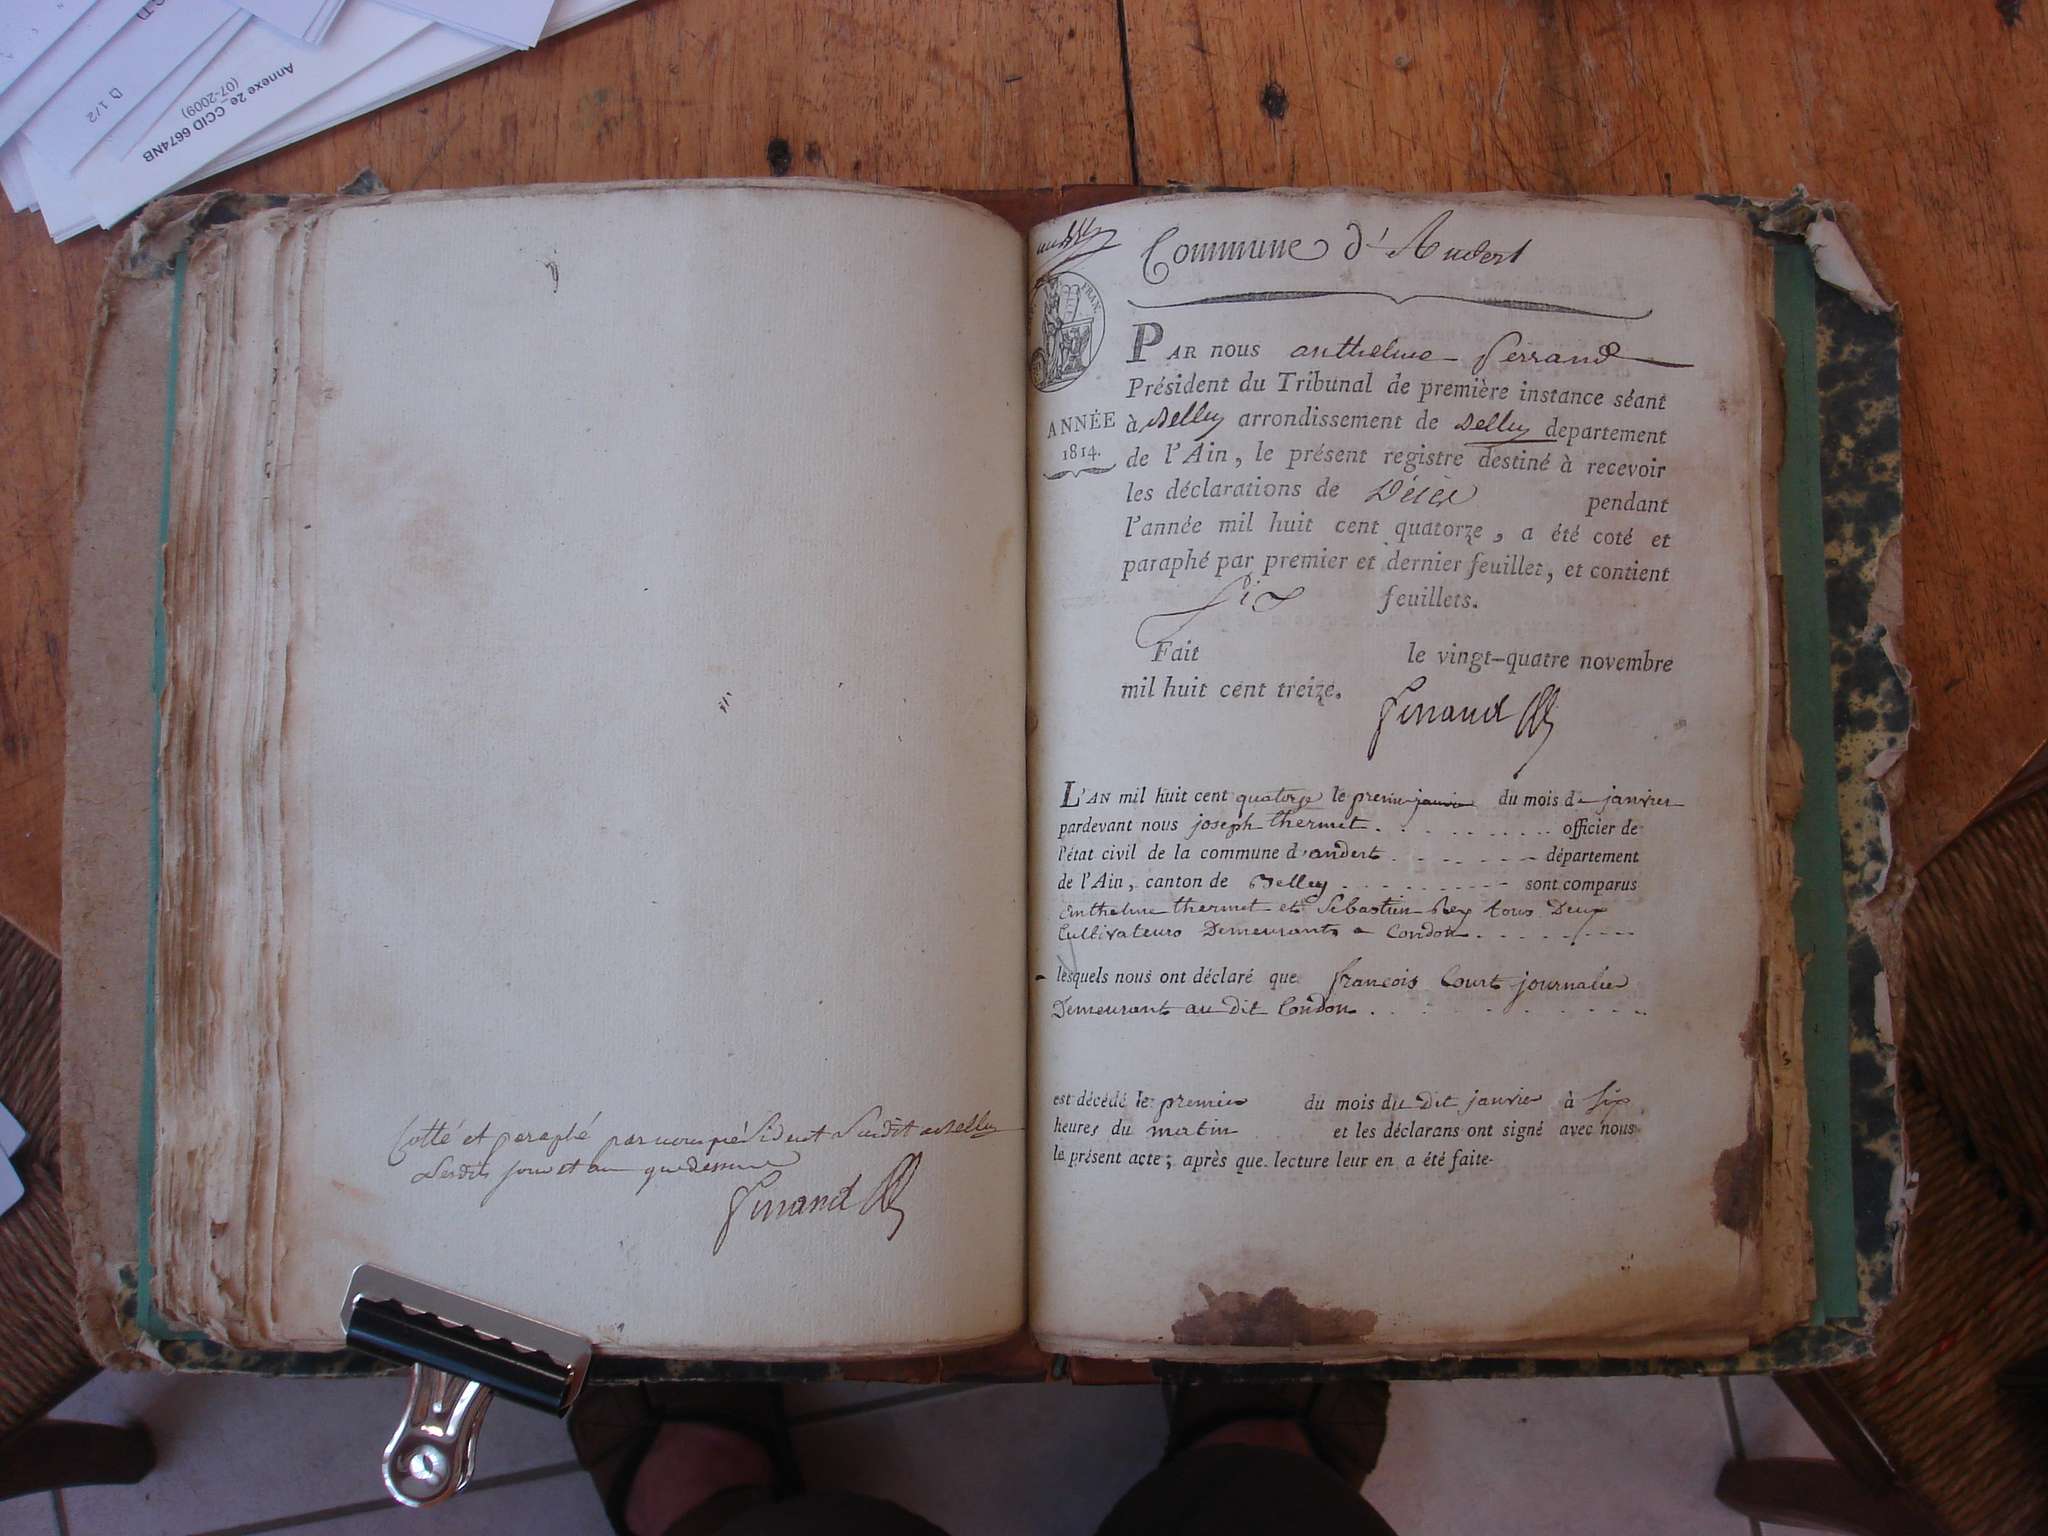 Annexe 2e_CCID 6674NB
(07-2009)
1/2
Cotté et paraphé par nous président susdit a Belley
Lesdits jour et an que dessus
Perrand
Commune d'Andert
FRAN.
ANNÉE
1814.
PAR nous anthelme Perrand
Président du Tribunal de première instance séant
à Belley arrondissement de Belley departement
de l'Ain, le présent registre destiné à recevoir
les déclarations de Décès pendant
l'année mil huit cent quatorze, a été coté et
paraphé par premier et dernier feuillet, et contient
Six feuillets.
Fait le vingt-quatre novembre
mil huit cent treize.
Perrand
L'AN mil huit cent quatorze le premier janvier du mois de janvier
pardevant nous joseph thermet . . . . . . . . . officier de
l'état civil de la commune d'andert . . . . . . département
de l'Ain, canton de Belley . . . . . . . . . sont comparus
Anthelme thermet et Sebastien Rey tous Deux
Cultivateurs Demeurants a Condon . . . . . . .
lesquels nous ont déclaré que francois Court journalier
Demeurant au dit Condon . . . . . . . . . .
est décédé le premier du mois du Dit janvier à Six
heures du matin et les déclarans ont signé avec nous
le présent acte; après que lecture leur en a été faite